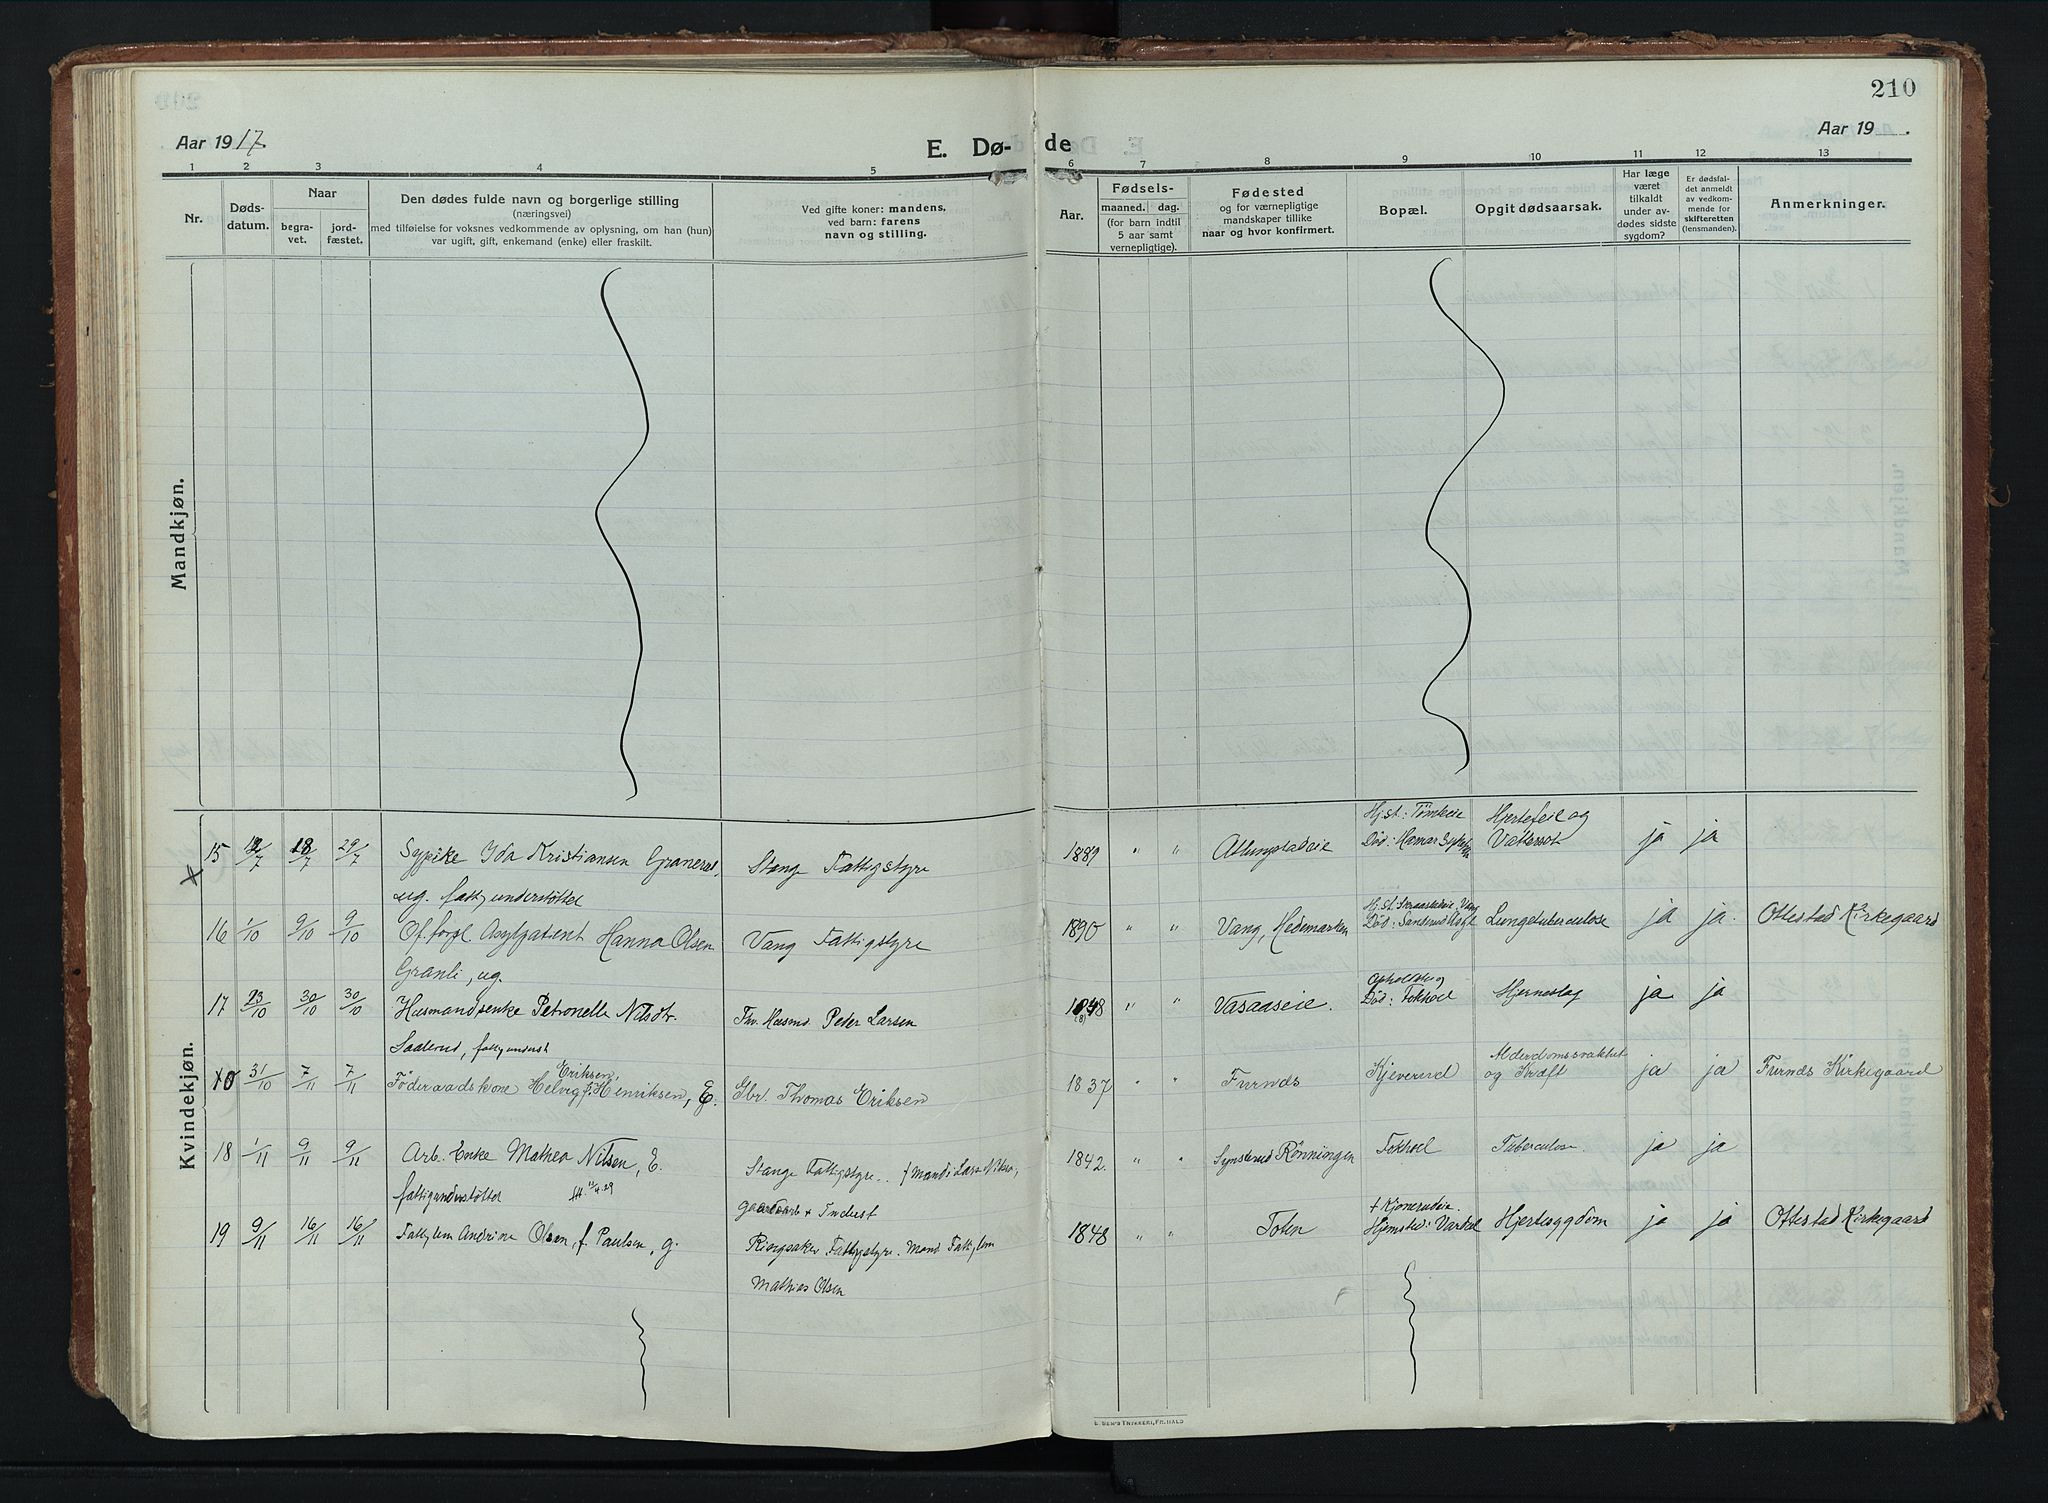 210
Aar 1917.
E. Dø-
de
Aar 19 .
1 2 3 4 5 6 7 8 9 10 11 12 13
Nr.
Døds-
datum.
Naar
begra-
vet.
jord-
fæstet.
Den dødes fulde navn og borgerlige stilling
(næringsvei)
med tilføielse for voksnes vedkommende av oplysning, om han (hun)
var ugift, gift, enkemand (enke) eller fraskilt.
Ved gifte koner: mandens,
ved barn: farens
navn og stilling.
Aar.
Fødsels-
maaned. dag.
(for barn indtil
5 aar samt
vernepligtige).
Fødested
og for værnepligtige
mandskaper tillike
naar og hvor konfirmert.
Bopæl.
Opgit dødsaarsak.
Har læge
været
tilkaldt
under av-
dødes sidste
sygdom?
Er dødsfal-
det anmeldt
av vedkom-
mende for
skifteretten
(lensmanden).
Anmerkninger.
Mandkjøn.
Kvindekjøn.
Hjst: Tømteeie Hjertefeil og
15 12/7 18/7 29/7 Sypike Ida Kristiansen Granerud, Stange Fattigstyre 1889 " " Atlungstadeie Død: Hamar Sykeh Vattersot ja ja
ug. fattigunderstøttet
16 1/10 9/10 9/10 Of. forpl Asylpatient Hanna Olsen Vang Fattigstyre 1890 " " Vang, Hedemarken Død: Sanderud Asyl Lungetuberculose ja ja. Ottestad Kirkegaard
Granli, ug.
17 23/10 30/10 30/10 Husmandsenke Petronelle Nilsdtr. Fhv. Husmd. Peder Larsen 1848 " " Vasaaseie. Død: Tokhol Hjerneslag ja ja
Saalerud, fattigunderst
Eriksen, Alderdomssvakhet
10 31/10 7/11 7/11 Föderaadskone Helvig f. Henriksen, E. Gbr. Thomas Eriksen 1837 " " Furnds Kjeverud og Kræft ja ja Furnds Kirkegaard
18 1/11 9/11 9/11 Arb. Enke Mathea Nilsen, E. Stange Fattigstyre. f Mand: Lars Nilsen, 1842. " " Synsterud Rönningen Tokhol Tuberculose ja ja
fattigunderstøttet 12/4.29 gaardarb + Indust
19 9/11 16/11 16/11 Fattiglem Andrine Olsen, f. Paulsen, g. Ringsaker Fattigstyre. Mand Fattiglem 1848 " " Toten Hjemsted: Varkel Hjertesygdom ja ja Ottestad Kirkegaard
Mathias Olsen